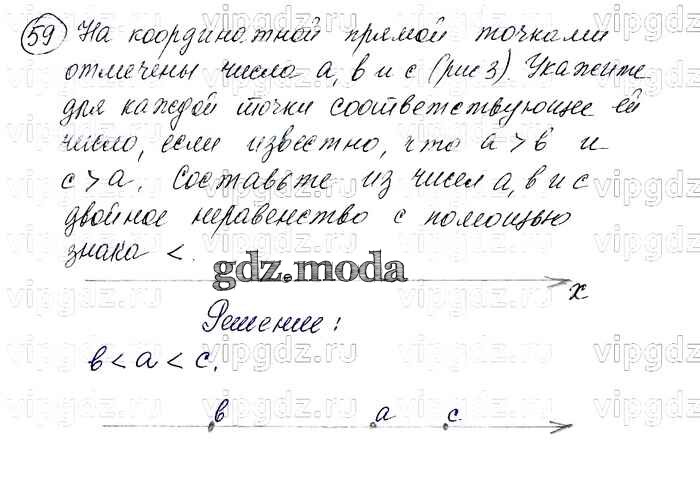 59 На координатной прямой точками
отмечены числа a, в и с (рис 3). Укажите
для каждой точки соответствующее ей
число, если известно, что a > в и
с > a. Составьте из чисел a, в и с
двойное неравенство с помощью
знака <.
gdz.moda
x
Решение:
в < a < с.
в a с
vipgdz.ru